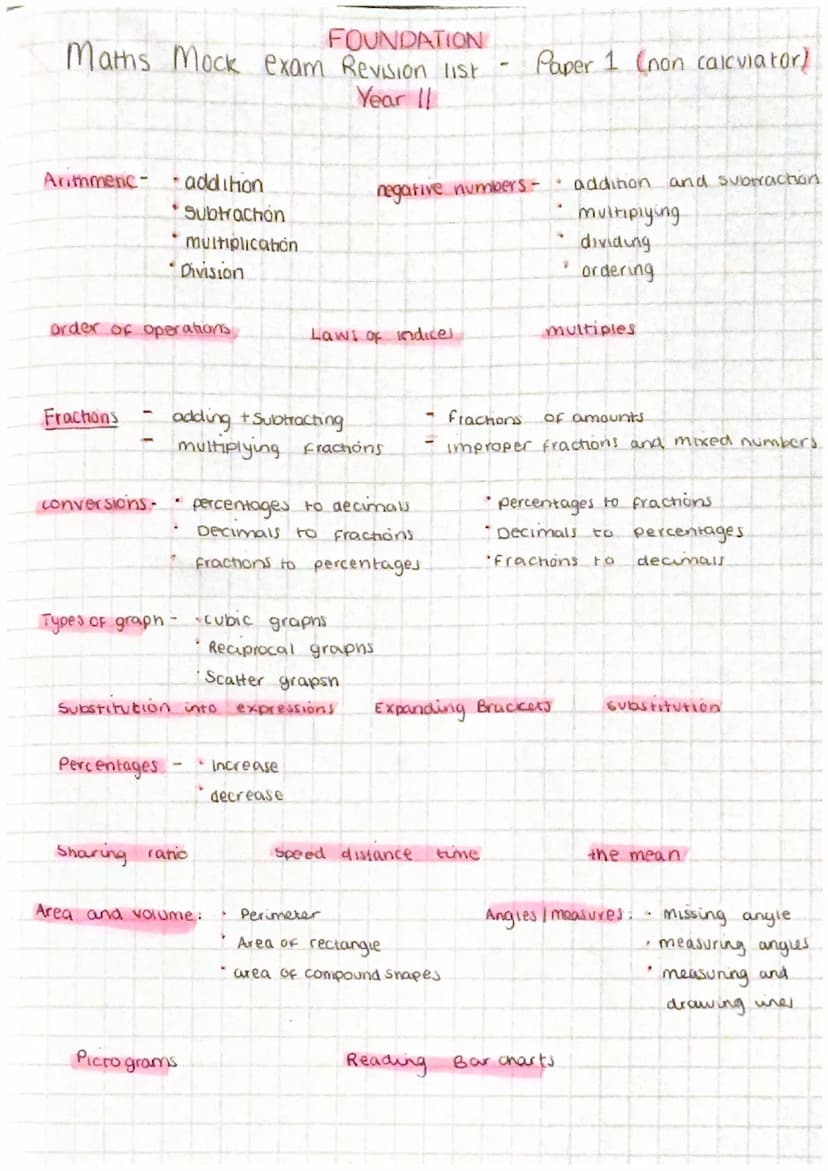 FOUNDATION
Maths Mock exam Revision list - Paper 1 (non calculator)
Year 11
Arithmetic - • addition
• subtraction
• multiplication
• Division
negative numbers - • addition and subtraction
• multiplying
• dividing
• ordering
order of operations Laws of indices multiples
Fractions - adding + Subtracting - fractions of amounts
- multiplying fractions - improper fractions and mixed numbers
conversions - • percentages to decimals • percentages to fractions
• Decimals to fractions • Decimals to percentages
• fractions to percentages • fractions to decimals
Types of graph - • cubic graphs
• Reciprocal graphs
• Scatter grapsh
Substitution into expressions Expanding Brackets substitution
Percentages - • increase
• decrease
Sharing ratio speed distance time the mean
Area and volume: • Perimeter
• Area of rectangle
• area of compound shapes
Angles/measures: • missing angle
• measuring angles
• measuring and
drawing lines
Pictograms Reading Bar charts